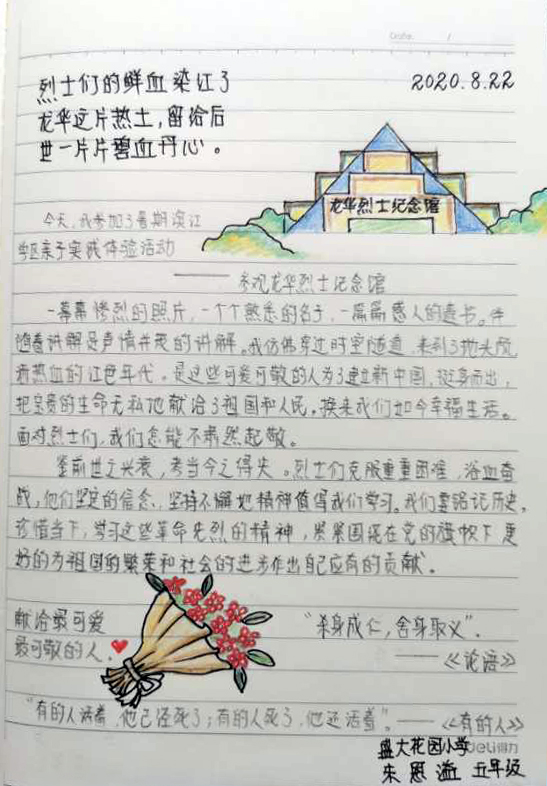 Date. /
2020.8.22
烈士们的鲜血染红了
龙华这片热土,留给后
世一片片碧血丹心。
龙华烈士纪念馆
今天,我参加了暑期滨江
学区亲子实践体验活动
——参观龙华烈士纪念馆
一幕幕惨烈的照片,一个个熟悉的名字,一篇篇感人的遗书。伴
随着讲解员声情并茂的讲解。我仿佛穿过时空隧道,来到了抛头颅
洒热血的红色年代。是这些可爱可敬的人为了建立新中国,挺身而出,
把宝贵的生命无私地献给了祖国和人民。换来我们如今幸福生活。
面对烈士们,我们怎能不肃然起敬。
鉴前世之兴衰,考当今之得失。烈士们克服重重困难,浴血奋
战,他们坚定的信念、坚持不懈地精神值得我们学习。我们要铭记历史,
珍惜当下,学习这些革命先烈的精神,紧紧围绕在党的旗帜下更
好的为祖国的繁荣和社会的进步作出自己应有的贡献。
献给最可爱
最可敬的人。
“杀身成仁,舍身取义”。
——《论语》
“有的人活着,他已经死了;有的人死了,他还活着”。——《有的人》
deli得力
盛大花园小学
朱恩溢 五年级